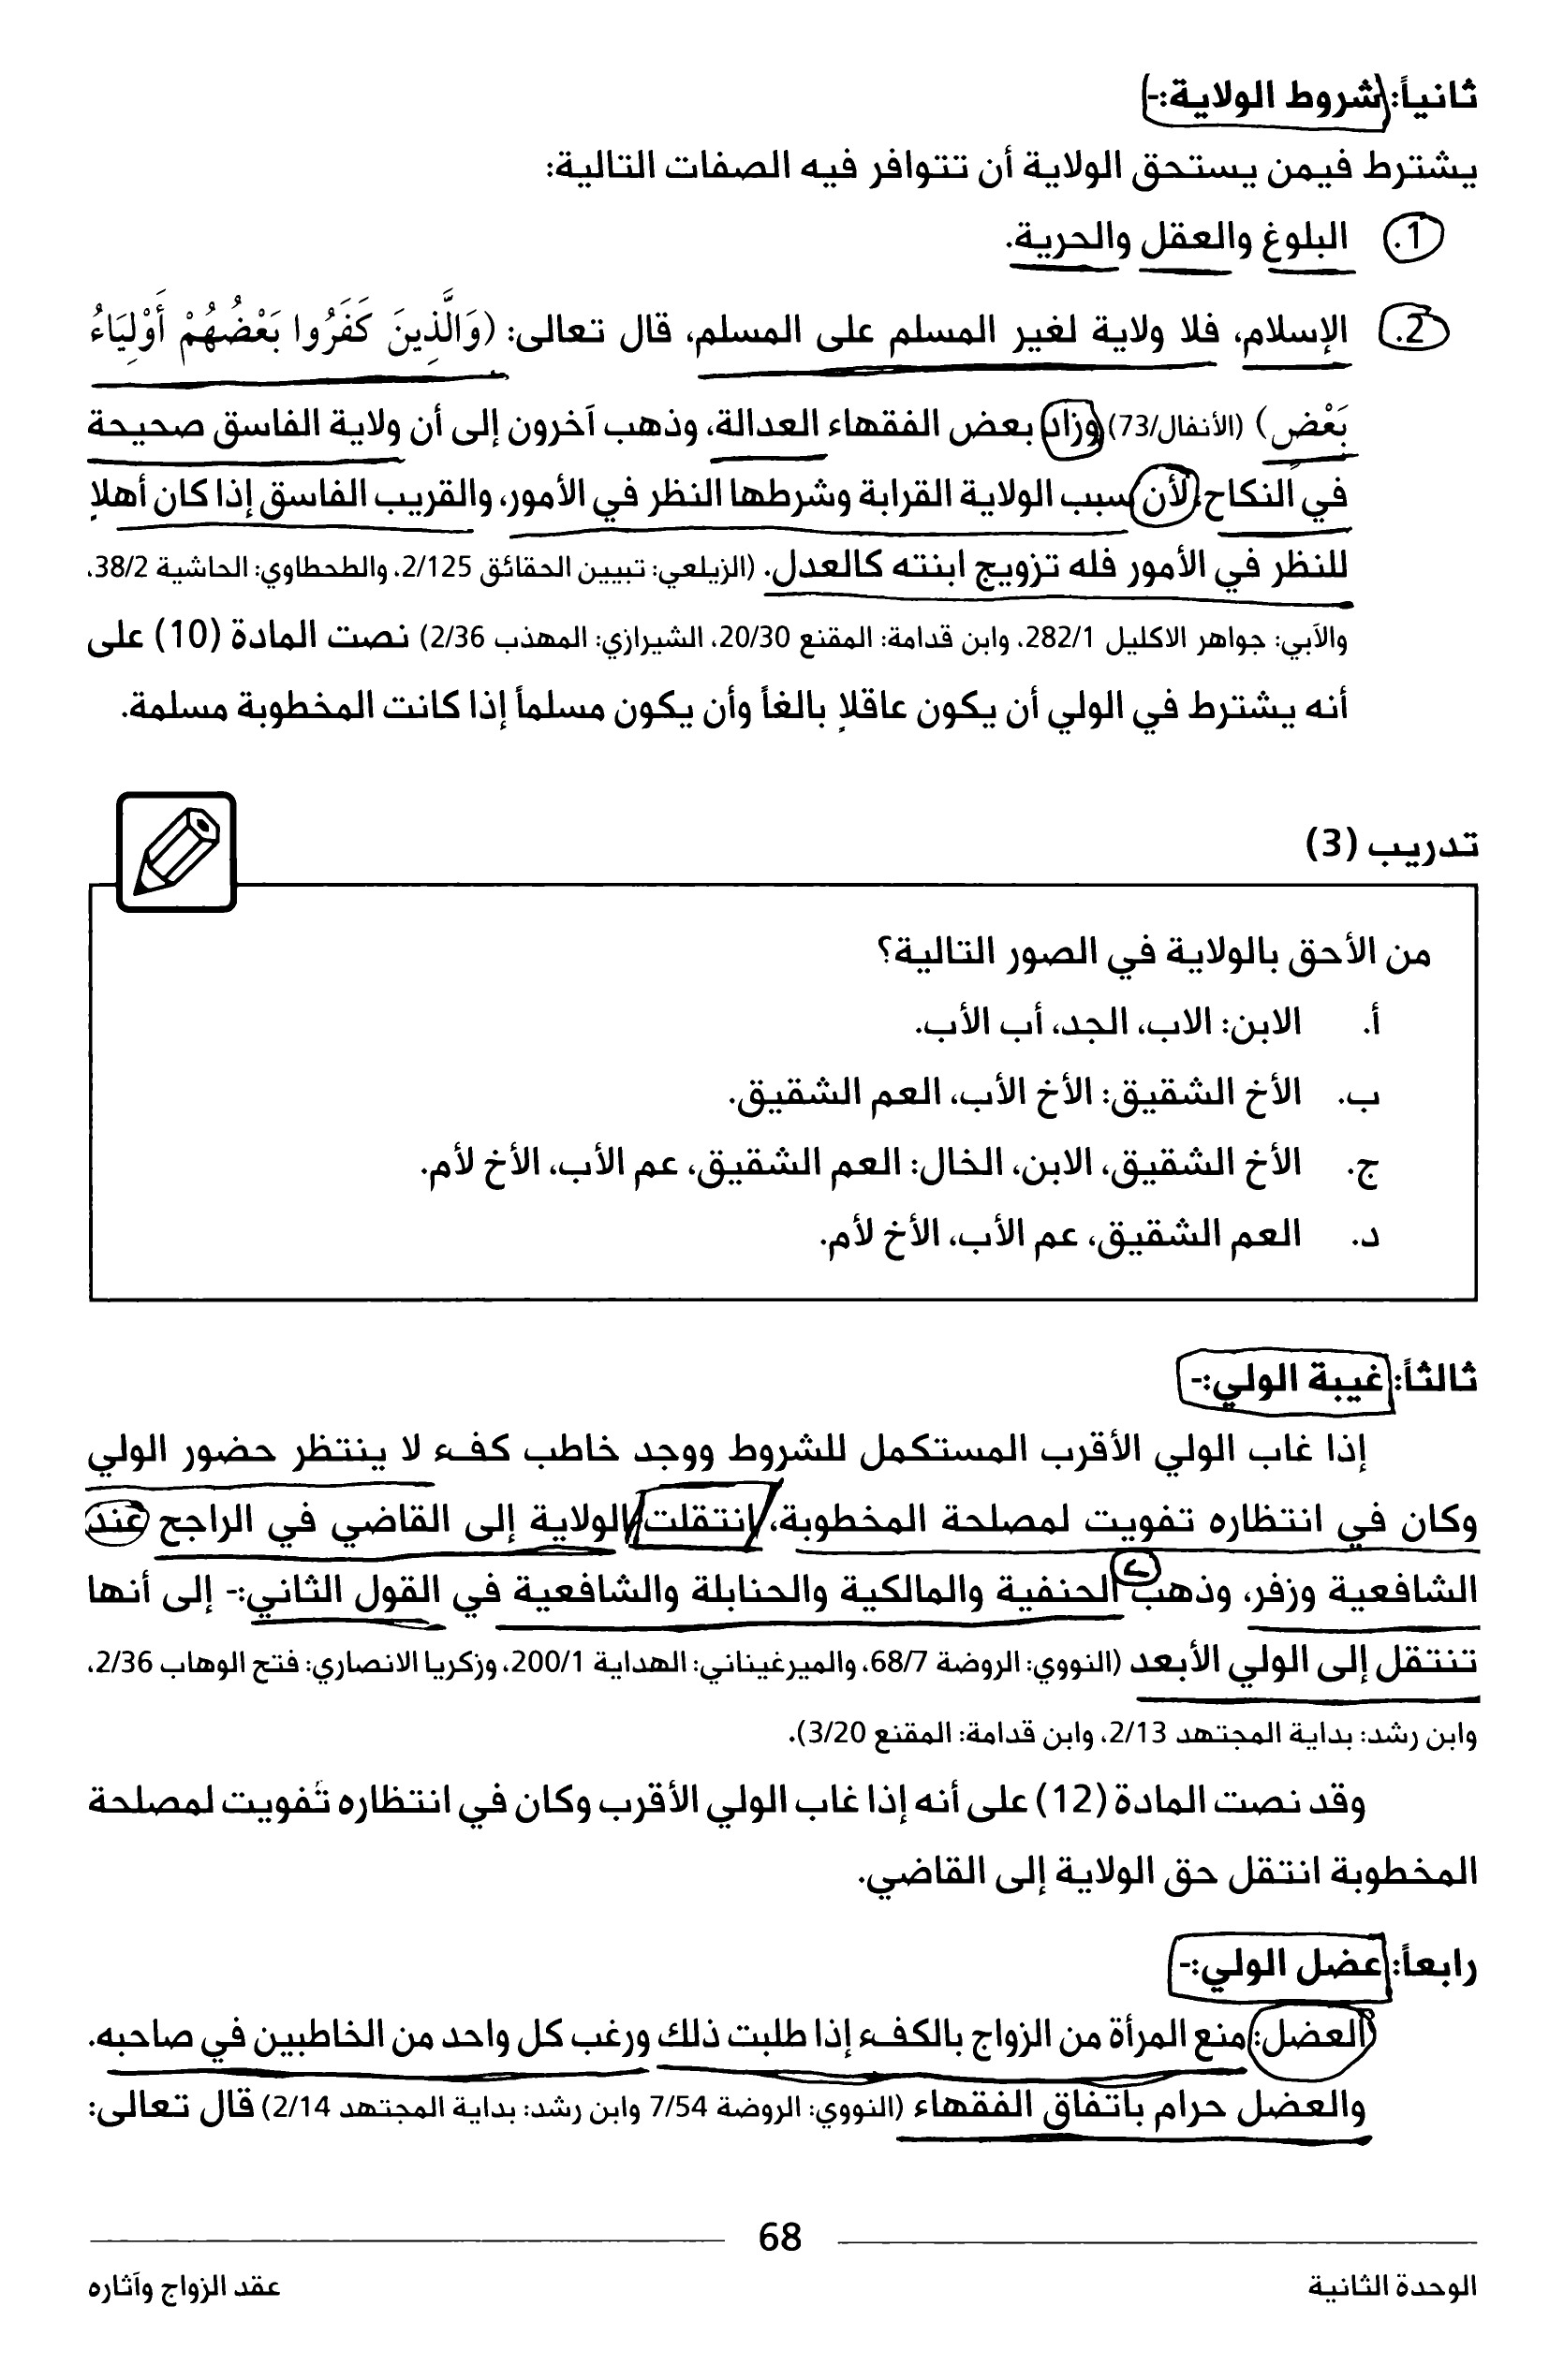 ثانياً: شروط الولاية:-
يشترط فيمن يستحق الولاية أن تتوافر فيه الصفات التالية:
1. البلوغ والعقل والحرية.
2. الإسلام، فلا ولاية لغير المسلم على المسلم، قال تعالى: (وَالَّذِينَ كَفَرُوا بَعْضُهُمْ أَوْلِيَاءُ
بَعْضٍ) (الأنفال/73) وزاد بعض الفقهاء العدالة، وذهب آخرون إلى أن ولاية الفاسق صحيحة
في النكاح، لأن سبب الولاية القرابة وشرطها النظر في الأمور، والقريب الفاسق إذا كان أهلاً
للنظر في الأمور فله تزويج ابنته كالعدل. (الزيلعي: تبيين الحقائق 2/125، والطحطاوي: الحاشية 38/2،
والآبي: جواهر الاكليل 282/1، وابن قدامة: المقنع 20/30، الشيرازي: المهذب 2/36) نصت المادة (10) على
أنه يشترط في الولي أن يكون عاقلاً بالغاً وأن يكون مسلماً إذا كانت المخطوبة مسلمة.
تدريب (3)
من الأحق بالولاية في الصور التالية؟
أ. الابن: الاب، الجد، أب الأب.
ب. الأخ الشقيق: الأخ الأب، العم الشقيق.
ج. الأخ الشقيق، الابن، الخال: العم الشقيق، عم الأب، الأخ لأم.
د. العم الشقيق، عم الأب، الأخ لأم.
ثالثاً: غيبة الولي:-
إذا غاب الولي الأقرب المستكمل للشروط ووجد خاطب كفء لا ينتظر حضور الولي
وكان في انتظاره تفويت لمصلحة المخطوبة، انتقلت الولاية إلى القاضي في الراجح عند
الشافعية وزفر، وذهب الحنفية والمالكية والحنابلة والشافعية في القول الثاني:- إلى أنها
تنتقل إلى الولي الأبعد (النووي: الروضة 68/7، والميرغيناني: الهداية 200/1، وزكريا الانصاري: فتح الوهاب 2/36،
وابن رشد: بداية المجتهد 2/13، وابن قدامة: المقنع 3/20).
وقد نصت المادة (12) على أنه إذا غاب الولي الأقرب وكان في انتظاره تفويت لمصلحة
المخطوبة انتقل حق الولاية إلى القاضي.
رابعاً: عضل الولي:-
العضل: منع المرأة من الزواج بالكفء إذا طلبت ذلك ورغب كل واحد من الخاطبين في صاحبه.
والعضل حرام باتفاق الفقهاء (النووي: الروضة 7/54 وابن رشد: بداية المجتهد 2/14) قال تعالى:
68
الوحدة الثانية
عقد الزواج وآثاره